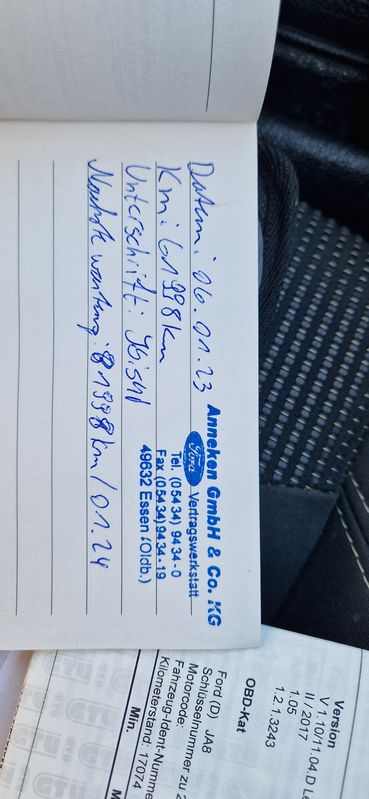 Datum: 06.01.23
Km: 61998km
Unterschrift:
Nächste wartung: 81998km/01.24
Anneken GmbH & Co. KG
Ford Vertragswerkstatt
Tel. (05434) 9434-0
Fax (05434) 9434-19
49632 Essen (Oldb.)
Version
V 1.10/11.04.D
II/2017
1.05
1.2.1.3243
OBD-Kat
Ford (D) JA8
Schlüsselnummer zu 2
Motorcode:
Fahrzeug-Ident-Numme
Kilometerstand: 17074
Min.